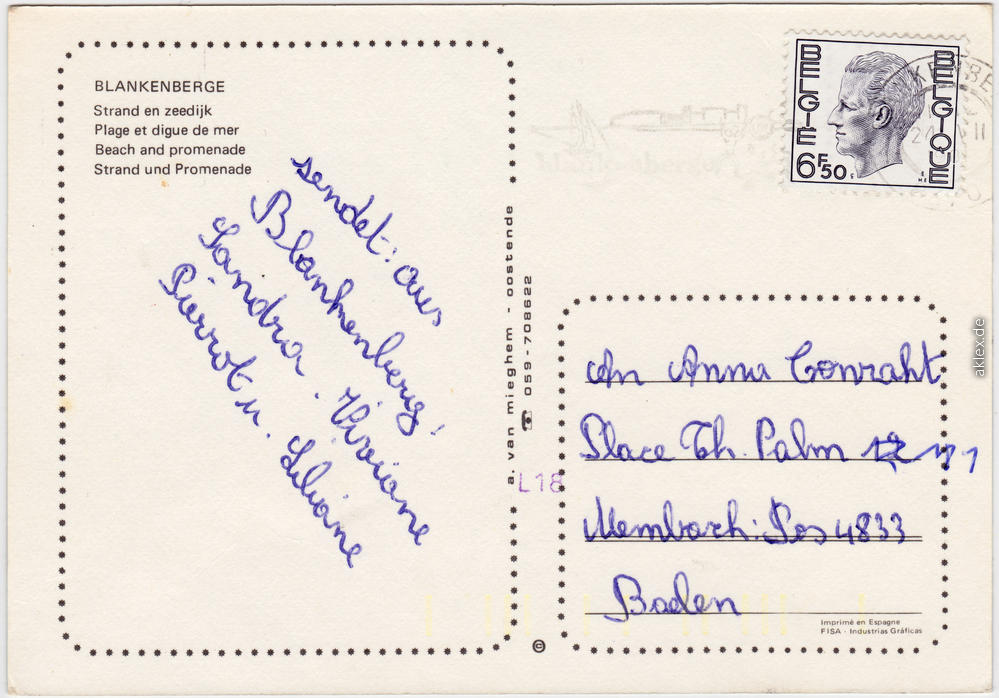 BLANKENBERGE
Strand en zeedijk
Plage et digue de mer
Beach and promenade
Strand und Promenade
sendet: aus
Blankenberg!
Sandra. Viviane
Pierrot u. Liliane
a. van mieghem - oostende
☎ 059-708622
BELGIE
BELGIQUE
6F50
An Anna Conraht
Place Th. Palm 11
L18
Membach: Pos 4833
Baelen
Imprimé en Espagne
FISA - Industrias Gráficas
©
aklex.de